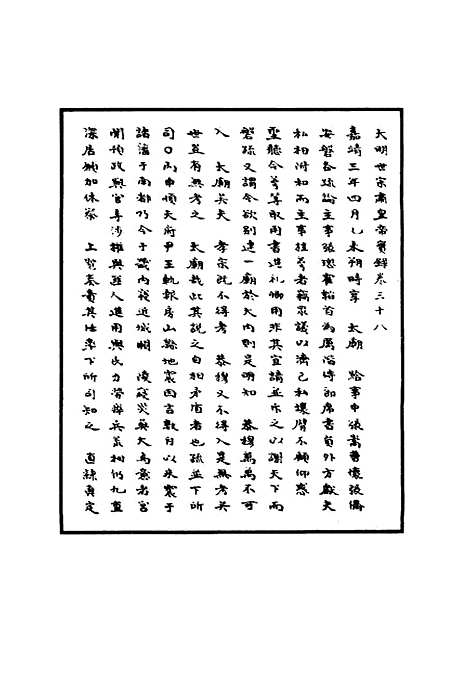 大明世宗肅皇帝實錄卷三十八
嘉靖三年四月乙未朔時享　太廟　給事中張嵩曹懷張僑
安磐各疏論主事張璁霍韜首為厲階侍郎席書員外方獻夫
私相附和而主事桂萼者竊眾議以濟己私壞臂不顧仰惑
聖聽今萼等取用書進禮卿用非其宜請並斥之以謝天下而
磐疏又謂今欲別建一廟於大內則是明知　恭穆萬萬不可
入　太廟矣夫　孝宗既不得考　恭穆又不得入是無考矣
世豈有無考之　太廟哉此其說之自相矛盾者也疏並下所
司○丙申順天府尹王軏報房山縣地震因言數月以來震于
諸藩于南都乃今于畿內寢近城闕　陵寢災異大為意者宮
闈預政與官寺沙摧與匪人進用與民力勞與兵荒相仍九重
深居願加休察　上覽奏責其仕率下所司知之　直隸真定